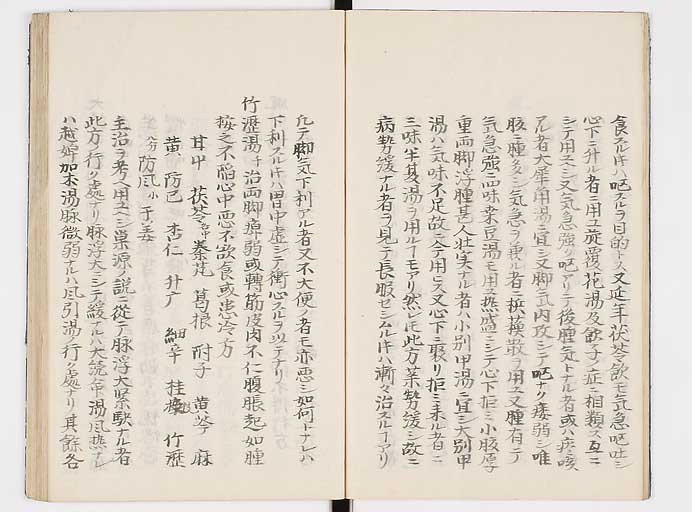 食スル時ハ呕スルヲ目的トス又延年茯苓飲モ気急呕吐シ
心下ニ升ル者ニ用ユ旋覆花湯及飲子ノ症ニ相類ス互ニ
シテ用ユベシ又気急強ク呕アリテ後腫気トナル者或ハ痰咳
アル者大犀角湯ニ宜シ又脚気内攻シテ呕ナク痿弱シ唯
腹ニ腫多クシ気急ヲ兼ル者ニ檳榔散ヲ用ユ又腫有テ
気急強ニ四味桑豆湯モ用ユ熱盛ニシテ心下拒ミ小腹厚
重両脚浮腫甚人壮実ナル者ハ小別甲湯ニ宜シ大別甲
湯ハ気味不足故ヘ今用ヒス又心下ニ聚リ拒ミ来ル者ニ
三味半夏湯ヲ用ルモアリ然レ此方薬勢緩シ故ニ
病勢緩ナル者ヲ見テ長服セシムル時ハ漸々治スルアリ
凡テ脚気下利アル者又不大便ノ者モ亦悪シ如何トナレハ
下利スル時ハ胃中虚シテ衝心スルヲ以テナリ
竹瀝湯チ治両脚痺弱或轉筋皮肉不仁腹脹起如腫
按之不陷心中悪不欲食或患冷方
耳中 茯苓 秦艽 葛根 附子 黄芩 麻
黄 防已 杏仁 升广 細辛 桂 竹瀝
防風 干姜
主治ヲ考ヘ用ユベシ巣源ノ説ニ從テ脉浮大緊駃ナル者
此方ノ行ク處ナリ脉浮大ニシテ緩ナルハ大続命湯風熱ナレ
ハ越婢加朮湯脉微弱ナルハ風引湯ノ行ク處ナリ其餘各